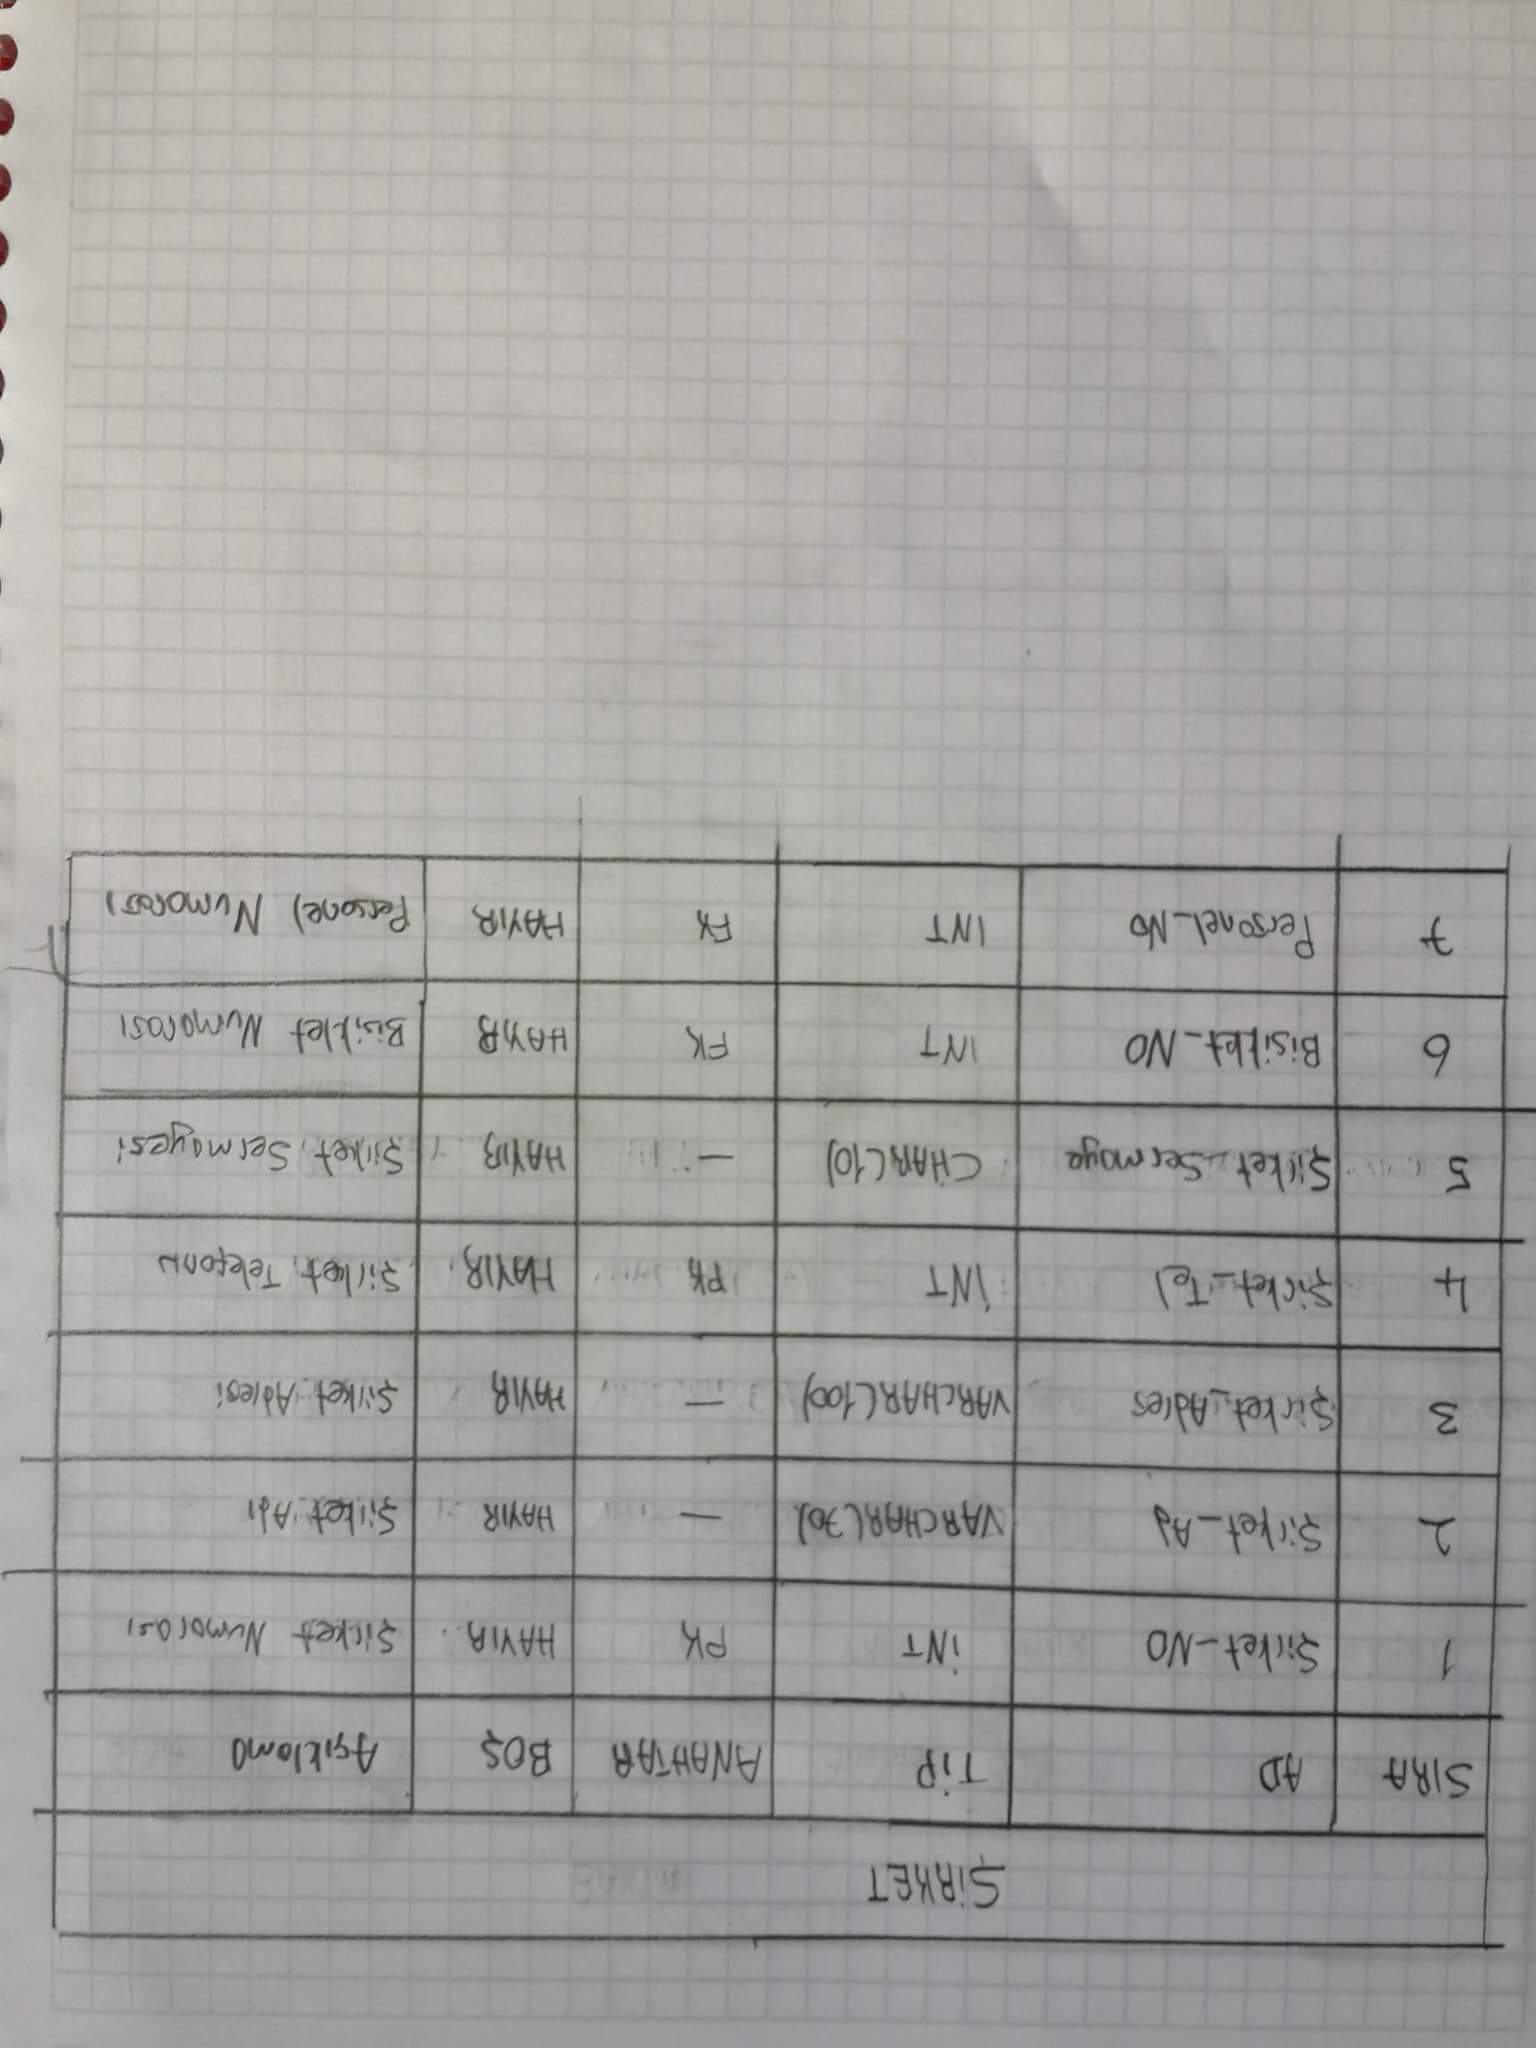 ŞİRKET
SIRA AD TİP ANAHTAR BOŞ Açıklama
1 Şirket_NO İNT PK HAYIR Şirket Numarası
2 Şirket_Ad VARCHAR(70) — HAYIR Şirket Adı
3 Şirket_Adres VARCHAR(100) — HAYIR Şirket Adresi
4 Şirket_Tel İNT PK HAYIR Şirket Telefonu
5 Şirket_Sermaye CHAR(10) — HAYIR Şirket Sermayesi
6 Bisiklet_NO INT FK HAYIR Bisiklet Numarası
7 Personel_No INT FK HAYIR Personel Numarası